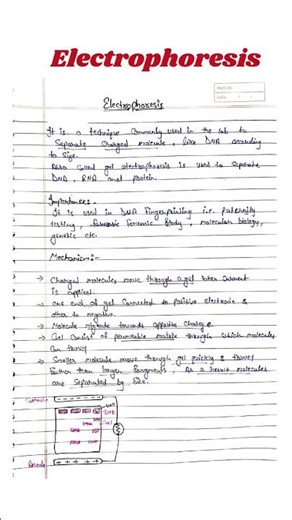 Electrophoresis
PAGE NO.
DATE
Electrophoresis
It is a technique commonly used in the lab to
Separate charged molecule, like DNA according
to Size.
gel electrophoresis is used to Separate
DNA, RNA and protein.
Importance:-
It is used in DNA fingerprinting i.e. paternity
testing, Forensic Study, molecular biology,
genetic etc.
Mechanism:-
→ Charged molecules move through a gel when Current
is applied.
→ one end of gel Connected to positive electrode &
other to negative.
→ Molecule migrate towards opposite charge.
→ Gel consist of permeable through which molecules
can travel
→ Smaller molecule move through gel quickly & travel
further than larger fragments. As a result molecules
are Separated by Size.
Cathode
well
DNA
Gel
Anode